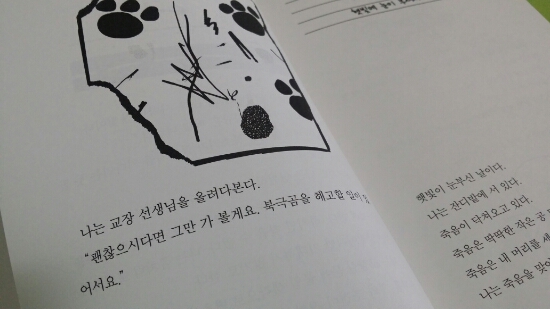 나는 교장 선생님을 올려다본다.
“괜찮으시다면 그만 가 볼게요. 북극곰을 해고할 일이
어서요.”
햇빛이 눈부신 날이다.
나는 잔디밭에 서 있다.
죽음이 닥쳐오고 있다.
죽음은 딱딱한 작은 공
죽음은 내 머리를
나는 죽음을